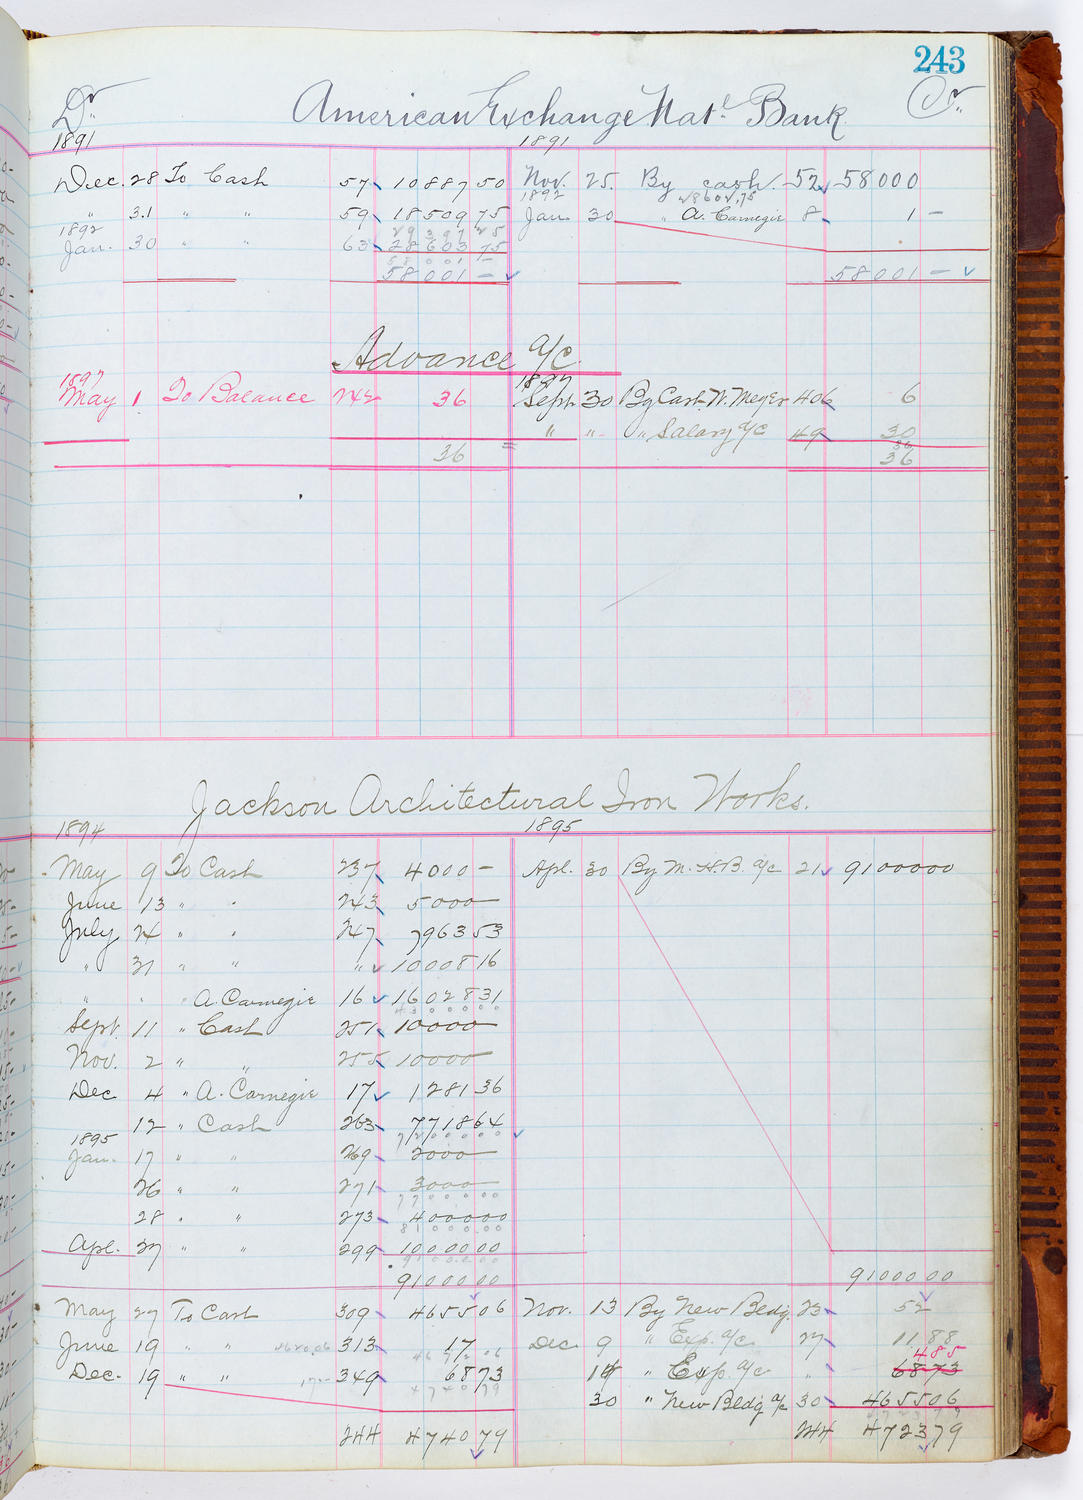 243
Dr. American Exchange Natl. Bank Cr.
1891 1891
Dec. 28 To Cash 57 10887 50 Nov. 25. By cash. 52 58000
1892 28602.75
" 31 " " 59 18509 75 Jan. 30 " A. Carnegie 8 1 –
1892 29397 25
Jan. 30 " " 63 28603 75
58001 –
58001 – 58001 –
Advance a/c.
1897 1897
May 1 To Balance 242 36 Sept. 30 By Cash W. Meyer 406 6
" " " Salary a/c 49 30
36
36 36
Jackson Architectural Iron Works.
1894 1895
May 9 To Cash 237 4000 – Apl. 30 By M. H. B. a/c 21 91000 00
June 13 " " 243 5000 –
July 24 " " 247 7963 53
" 31 " " " 10008 16
" " " A. Carnegie 16 16028 31
430000
Sept. 11 " Cash 251 10000 –
Nov. 2 " " 255 10000 –
Dec 4 " A. Carnegie 17 1281 36
12 " Cash 263 7718 64
7200000
1895
Jan. 17 " " 269 2000 –
26 " " 271 3000 –
7700000
28 " " 273 4000 00
8100000
Apl. 27 " " 299 10000 00
9100000
91000 00 91000 00
May 27 To Cash 309 4655 06 Nov. 13 By New Bldg. 23 52
June 19 " " 4620.06 313 17 Dec 9 " Exp. a/c 27 11 88
4672 06 4 85
Dec. 19 " " 17– 349 68 73 14 " Exp. a/c " 68 73
4740 79
30 " New Bldg a/c 30 4655 06
244 4740 79 244 4723 79